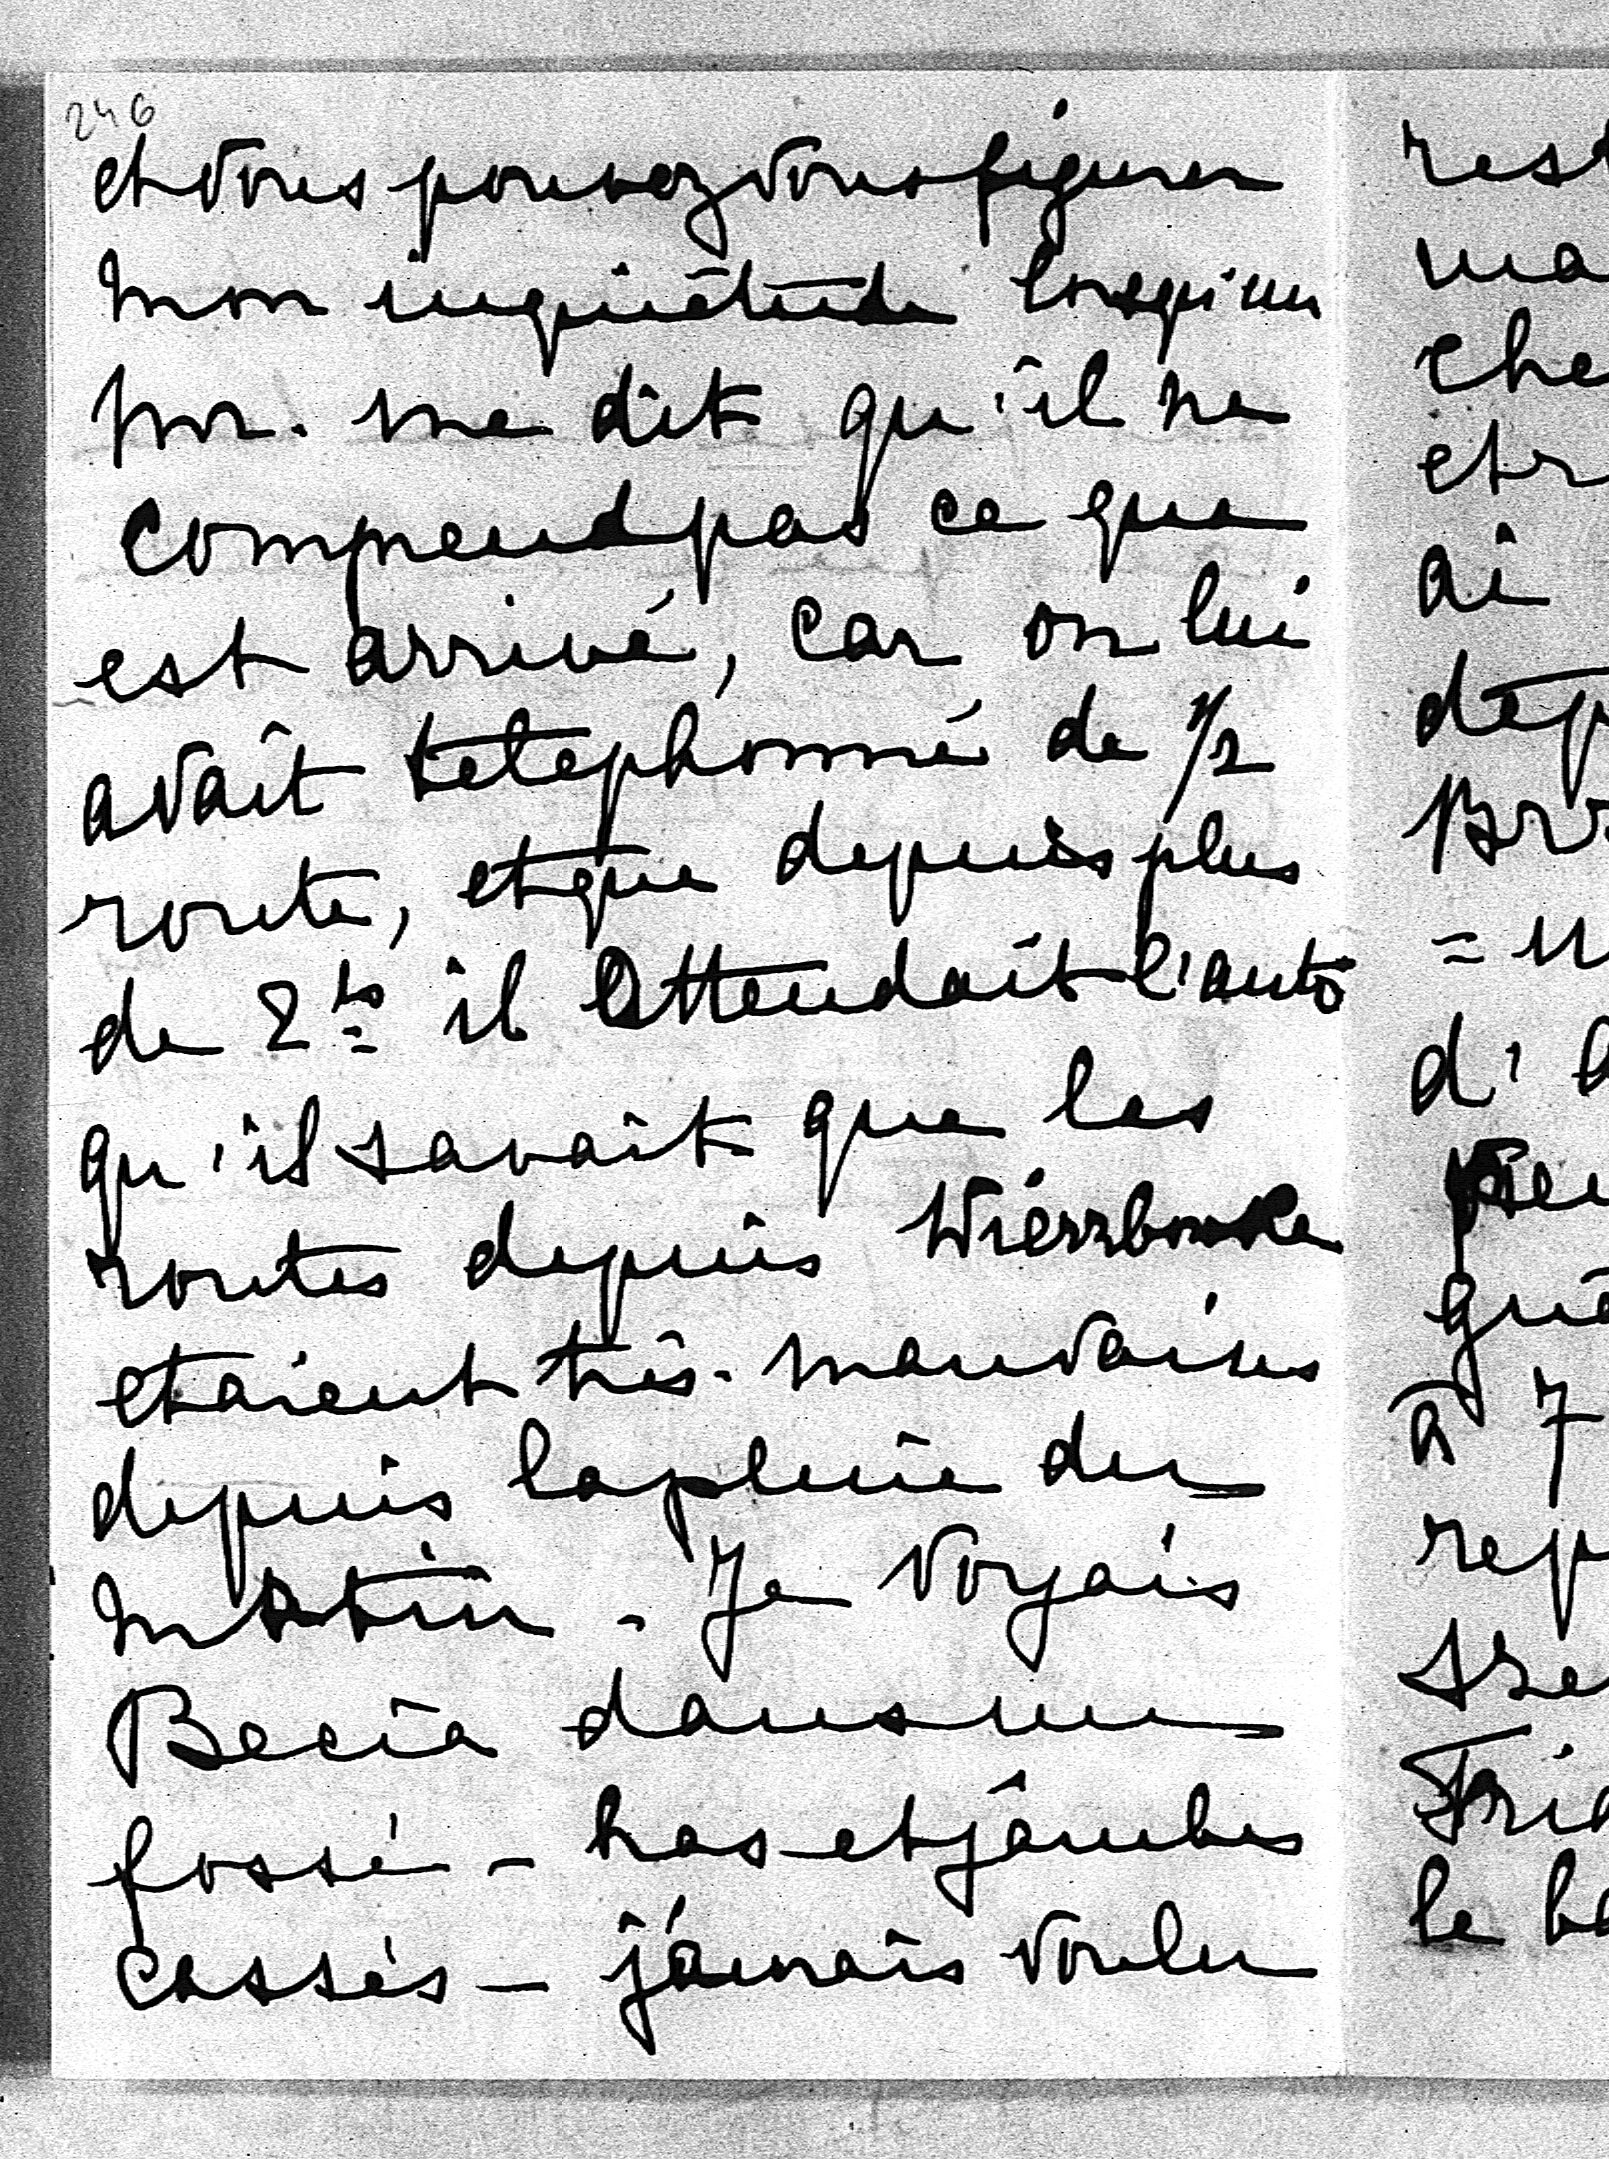 246
et vous pouvez vous figurer
mon inquiétude lorsqu'un
mr. me dit qu'il ne
comprend pas ce que
est arrivé, car on lui
avait telephonné de 1/2
route, et que depuis plus
de 2 hs il attendait l'auto
qu'il savait que les
routes depuis
etaient très mauvaises
depuis la pluie du
matin. Je voyais
Becia dans un
fossé - bras et jambes
cassés - j'aurais voulu
rest
ma
che
etr
ai
dep
= u
d'
gue
à 7
rep
le b